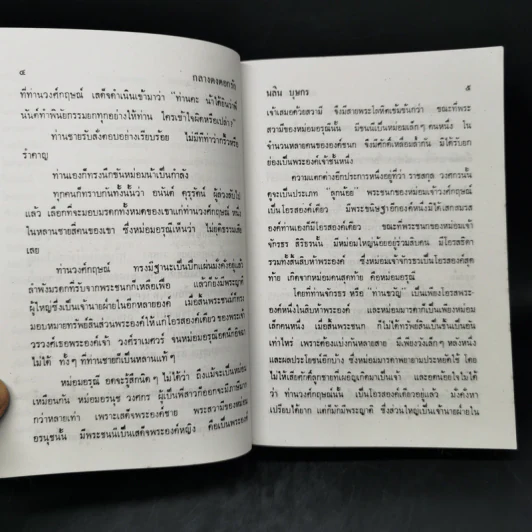 ๔
กลางดงดอกรัก
ที่ท่านวงศ์กฤษณ์ เสด็จดำเนินเข้ามาว่า "ท่านคะ น้าได้ยินว่าพี่
นันต์ทำพินัยกรรมยกทุกอย่างให้ท่าน ใครเข้าใจผิดหรือเปล่า"
ท่านชายรับสั่งตอบอย่างเรียบร้อย ไม่มีทีท่าว่ากริ้วหรือ
รำคาญ
ท่านเองก็ทรงนึกขันหม่อมน้าเป็นกำลัง
ทุกคนก็ทราบกันทั้งนั้นว่า อนันต์ คุรุรัตน์ ผู้ล่วงลับไป
แล้ว เลือกที่จะมอบมรดกทั้งหมดของเขาแก่ท่านวงศ์กฤษณ์ หนึ่ง
ในหลานชายสี่คนของเขา ซึ่งหม่อมอรุณีเห็นว่า ไม่ยุติธรรมเสีย
เลย
ท่านวงศ์กฤษณ์ ทรงมีฐานะเป็นปึกแผ่นมั่งคั่งอยู่แล้ว
ลำพังมรดกที่รับจากพระชนกก็เหลือเฟือ แล้วก็ยังมีพระญาติ
ผู้ใหญ่ซึ่งเป็นเจ้านายฝ่ายในอีกหลายองค์ เมื่อสิ้นพระชนม์ก็ทรง
มอบหมายทรัพย์สินส่วนพระองค์ให้แก่โอรสองค์เดียว ของพระเจ้า
วรวงศ์เธอพระองค์เจ้า วงศ์รามเศวร์ จนหม่อมอรุณีอดนึกอิจฉา
ไม่ได้ ทั้งๆ ที่ท่านชายก็เป็นหลานแท้ๆ
หม่อมอรุณี อดจะรู้สึกนิดๆ ไม่ได้ว่า ถึงแม้จะเป็นหม่อม
เหมือนกัน หม่อมอรนุช วงศกร ผู้เป็นพี่สาวก็ออกจะมีภาษีมาก
กว่าหลายเท่า เพราะเสด็จพระองค์ชาย พระสวามีของหม่อม
อรนุชนั้น มีพระชนนีเป็นเสด็จพระองค์หญิง คือเป็นพระองค์
นลิน บุษกร
๕
เจ้าเสมอด้วยสวามี จึงมีสายพระโลหิตเข้มข้นกว่า ขณะที่พระ
สวามีของหม่อมอรุณีนั้น มีชนนีเป็นหม่อมเล็กๆ คนหนึ่ง ใน
จำนวนหลายคนขององค์ชนก จึงมีศักดิ์เหลื่อมล้ำกัน มิได้รับยก
ย่องเป็นพระองค์เจ้าชั้นหนึ่ง
ความแตกต่างอีกประการหนึ่งอยู่ที่ว่า ราชสกุล วงศกรนั้น
ดูจะเป็นประเภท "ลูกน้อย" พระชนกของหม่อมเจ้าวงศ์กฤษณ์
เป็นโอรสองค์เดียว มีพระชนิษฐาอีกองค์หนึ่งมิได้เสกสมรส
องค์ท่านเองก็มีโอรสองค์เดียว ขณะที่พระชนกของหม่อมเจ้า
จักรธร สิริธรนั้น มีหม่อมใหญ่น้อยอยู่ร่วมสิบคน มีโอรสธิดา
รวมทั้งสิ้นสิบห้าพระองค์ ซึ่งหม่อมเจ้าจักรธรเป็นโอรสองค์ที่สุด
ท้าย เกิดจากหม่อมคนสุดท้าย คือหม่อมอรุณี
โดยที่ท่านจักรธร หรือ "ท่านขวัญ" เป็นเพียงโอรสพระ
องค์หนึ่งในสิบห้าพระองค์ และหม่อมมารดาก็เป็นเพียงหม่อม
เล็กคนหนึ่ง เมื่อสิ้นพระชนก ก็ไม่ได้ทรัพย์สินเป็นชิ้นเป็นอัน
เท่าไหร่ เพราะต้องแบ่งกันหลายสาย มีเพียงวังเล็กๆ หลังหนึ่ง
และผลประโยชน์อีกบ้าง ซึ่งหม่อมมารดาพยายามประหยัดใช้ โดย
ไม่ให้เสียศักดิ์ลูกชายที่เผอิญเกิดมาเป็นเจ้า และอดน้อยใจไม่ได้
ว่า ท่านวงศ์กฤษณ์นั้น เป็นโอรสองค์เดียวอยู่แล้ว มั่งคั่งหา
เปรียบได้ยาก แต่ก็มักมีพระญาติ ซึ่งส่วนใหญ่เป็นเจ้านายฝ่ายใน